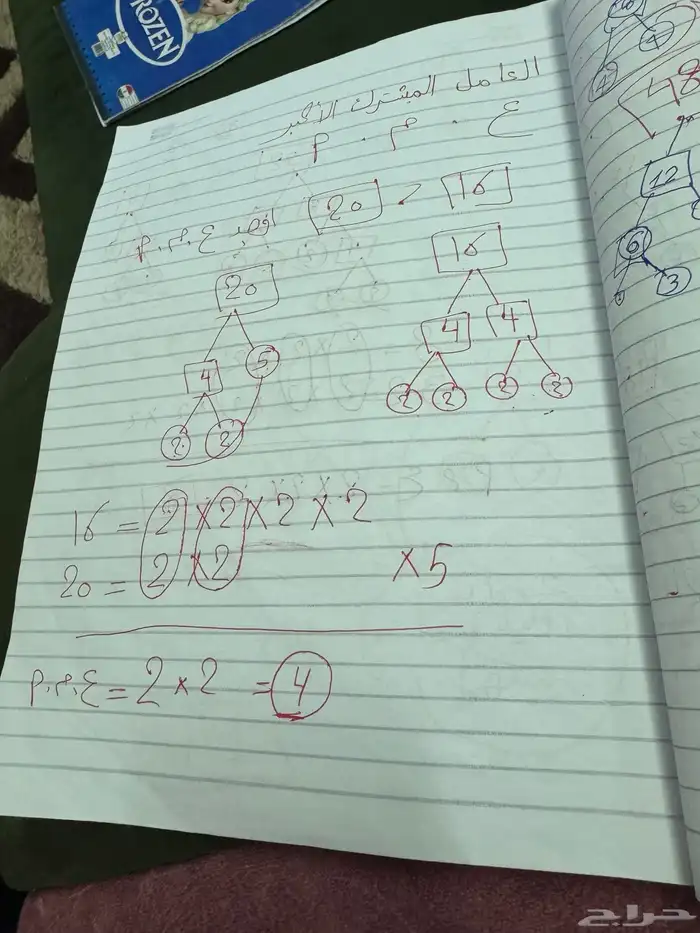 العامل المشترك الأكبر
ع . م . م
16 ، 20 أوجد ع.م.م
16
20
4 4
4 5
2 2 2 2
2 2
16 = 2 × 2 × 2 × 2
20 = 2 × 2 × 5
ع.م.م = 2 × 2 = 4
48
12
6
3
FROZEN
حراج